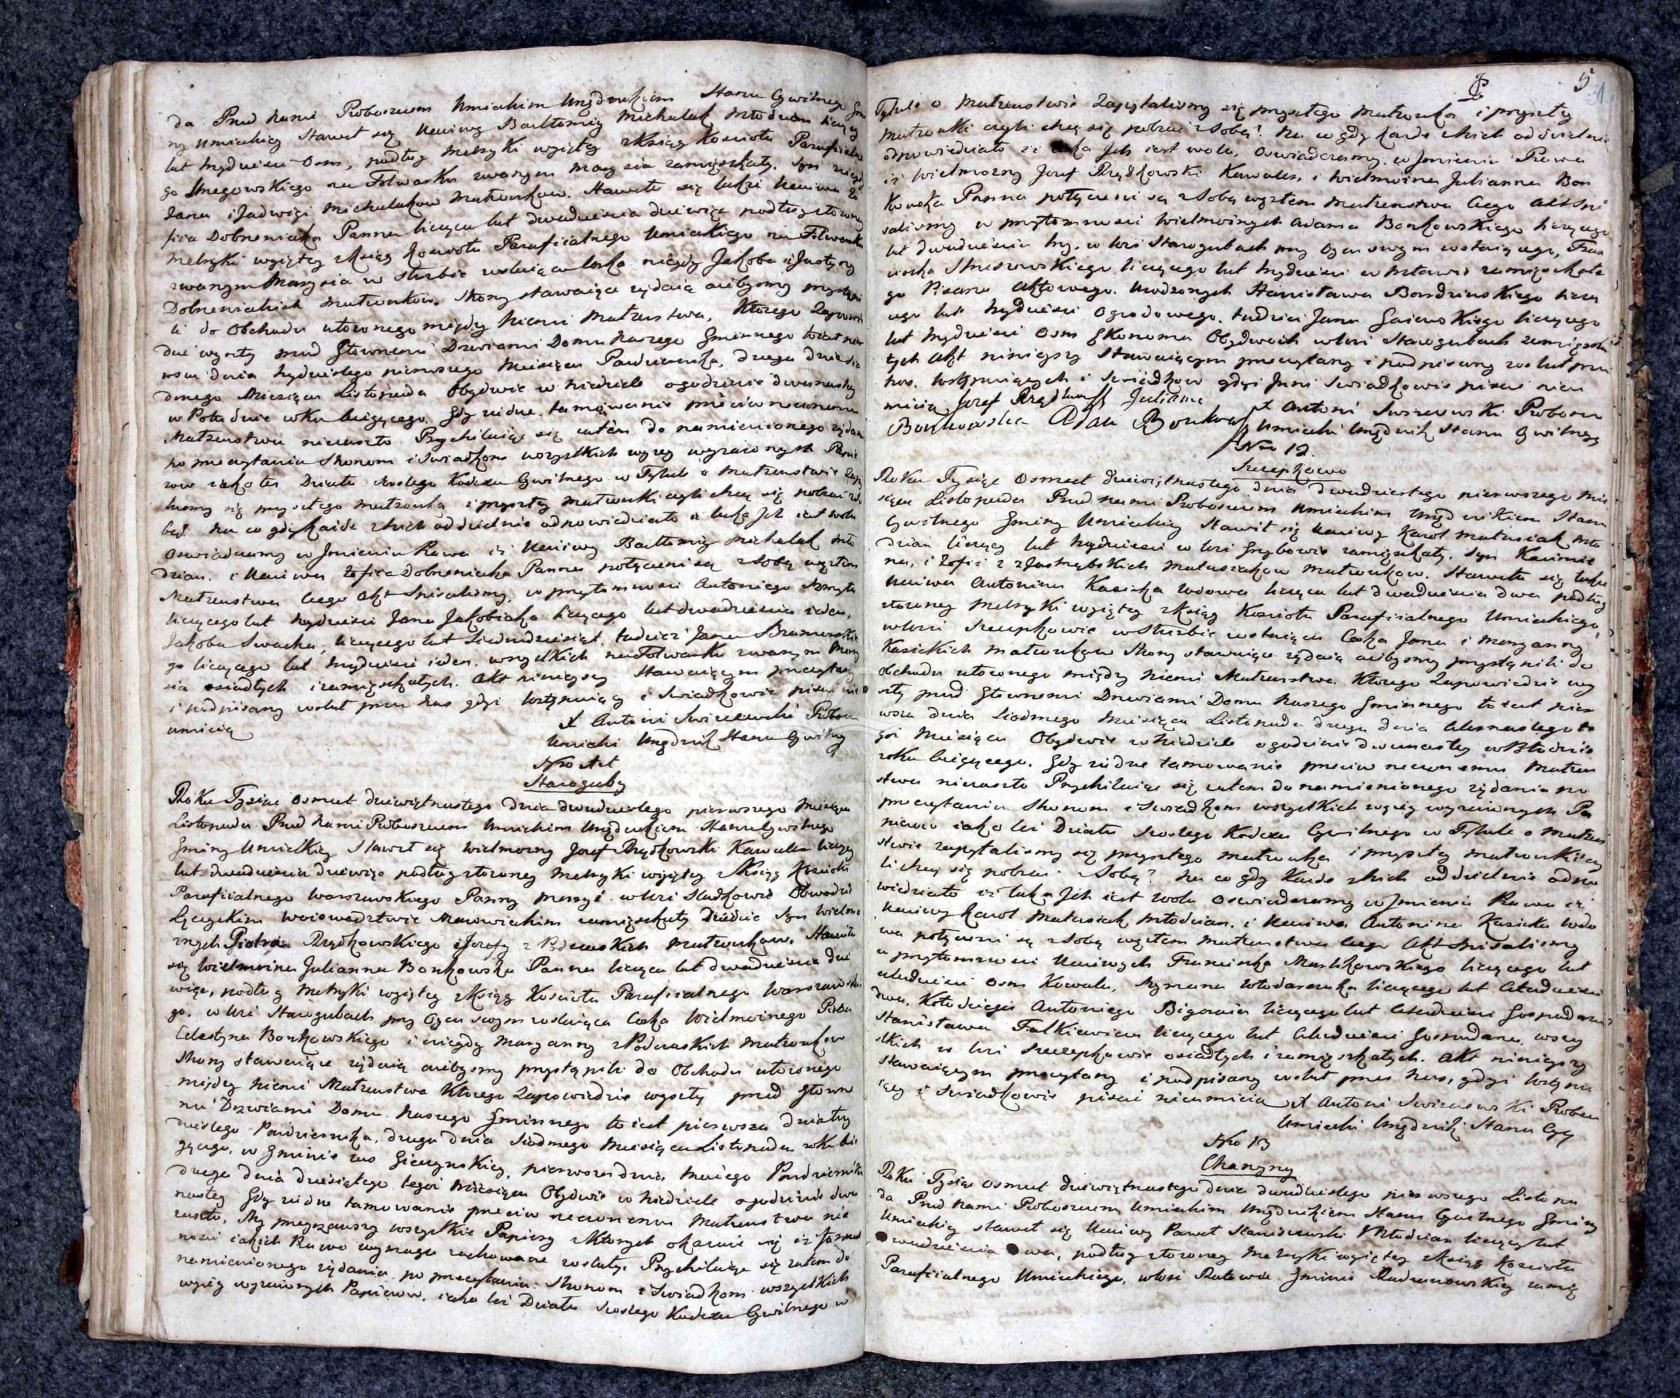 da Przed Nami Proboszczem Umieckim Urzędnikiem Stanu Cywilnego Gmi
ny Umieckiey Stawił się Uczciwy Bartłomiey Michalak Młodzian liczący
lat trzydzieści osm, podług Metryki wyiętey z Ksiąg Kościoła Parafialne
go na Folwarku zwanym zamięszkały, Syn niegdy
Jana i Jadwigi Michalakow Małżonkow. Stawiła się także Uczciwa Zo
fiia Dobrenieńka Panna licząca lat dwadzieścia dziewięć podług złożoney
Metryki wyiętey z Ksiąg Kościoła Parafialnego Umieckiego na Folwarku
zwanym w służbie zostaiąca Corka niegdy Jakoba i Justyny
Dobrenieńkich Małżonkow. Strony stawaiące żądaią ażebyśmy przystąpi
li do Obchodu ułożonego między Niemi Małżeństwa, Którego Zapowie
dzi wyszły przed Głownemi Drzwiami Domu Naszego Gminnego to iest pier
wsza dnia trzydziestego pierwszego Miesiąca Października, druga dnia sio
dmego Miesiąca Listopada Obydwie w Niedziele o godzinie dwunastey
w Południe roku bieżącego. Gdy żadne tamowanie przeciw rzeczonemu
Małżeństwu nie zaszło Przychilaiąc się zatem do namienionego żądania
po przeczytaniu Stronom i Swiadkom wszystkich wyżey wyrażonych Papie
row iako też Działu szostego Kodexu Cywilnego w Tytule o Małżeństwie Zapy
taliśmy się przyszłego małżonka i przyszłey małżonki czyli chcą się pobrać z So
bą? Na co gdy każde z Nich oddzielnie odpowiedziało iż taka Ich iest wola
Oswiadczamy w Imieniu Prawa iż Uczciwy Bartłomiey Michalak Mło
dzian, i Uczciwa Zofiia Dobrenieńka Panna połączeni są z Sobą węzłem
Małżeństwa czego Akt Spisaliśmy w przytomności Antoniego
liczącego lat trzydzieści Jana Jakobiaka liczącego lat dwadzieścia ieden,
Jakoba liczącego lat siedmdziesiąt, tudzież Jana
go liczącego lat trzydzieści ieden, wszystkich na Folwarku zwanym
osiadłych i zamięszkałych. Akt ninieyszy Stawaiącym przeczytany
i podpisany został przez Nas gdyż wstępuiący i Swiadkowie pisać nie
umieią X Antoni Swirzewski Probosz
Umiecki Urzędnik Stanu Cywilny
Nro 11
Staroguby
Roku Tysiąc osmset dziewiętnastego dnia dwudziestego pierwszego Miesiąca
Listopada Przed Nami Proboszczem Umieckim Urzędnikiem Stanu Cywilnego
Gminy Umieckiey Stawił się Wielmożny Jozef Prądkowski Kawaler liczący
lat dwadzieścia dziewięć podług złożoney Metryki wyiętey z Ksiąg Kościoła
Parafialnego Warszawskiego Panny Maryi w Wsi Obwodzie
Łęczyckim Woiewodztwie Mazowieckim zamięszkały Dziedzic Syn Wielmo
żnych Piotra Prądkowskiego i Jozefy z Małżonkow. Stawiła
się Wielmożna Julianna Bonkowska Panna licząca lat dwadzieścia dzie
więc, podług Metryki wyiętey z Ksiąg Kościoła Parafialnego Warszawskie
go, w Wsi Starogubach przy Oycu swym zostaiąca Corka Wielmożnego
Celestyna Bonkowskiego i niegdy Maryanny z Podczaskich Małżonkow
Strony stawaiące żądaią ażebyśmy przystąpili do Obchodu ułożonego
między Niemi Małżeństwa Którego Zapowiedzie wyszły przed Głowne
mi Drzwiami Domu Naszego Gminnego to iest pierwsza dnia trzy
dziestego Października, druga dnia Siodmego Miesiąca Listopada roku bie
żącego, w Gminie zaś pierwsza dnia Października
druga dnia dziesiątego tegoż Miesiąca Obydwie w Niedziele o godzinie dwu
nastey Gdy żadne tamowanie przeciw rzeczonemu Małżeństwu nie
zaszło, My przeyrzawszy wszystkie Papiery z Ktorych okazuie się iż formal
ności iakich Prawo wymaga zachowane zostały. Przychilaiąc się zatem do
namienionego żądania po przeczytaniu Stronom i Swiadkom wszystkich
wyżey wyrażonych Papierow, iako też Działu szostego Kodexu Cywilnego w
5
Tytule o Małżeństwie Zapytaliśmy się przyszłego małżonka i przyszłey
małżonki czyli chcą się pobrać z Sobą? Na co gdy każde z Nich oddzielnie
odpowiedziało iż taka Ich iest wola, Oswiadczamy w Imieniu Prawa
iż Wielmożny Jozef Prądkowski Kawaler, i Wielmożna Julianna Bon
kowska Panna połączeni są z Sobą węzłem Małżeństwa Czego Akt Spi
saliśmy w przytomności Wielmożnych Adama Bonkowskiego liczącego
lat dwadzieścia trzy, w Wsi Starogubach przy Oycu swym zostaiącego, Fran
ciszka liczącego lat trzydzieści w zamięszkałe
go Pisarza Aktowego. Urodzonych Stanisława liczą
cego lat trzydzieści Ogrodowego, tudzież Jana Gaiewskiego liczącego
lat trzydzieści osm Ekonoma Obydwoch w Wsi Starogubach zamięszka
łych Akt ninieyszy Stawaiącym przeczytany i podpisany został przez
Nas, Wstępuiących i Swiadkow gdyż Inni Swiadkowie pisać nie
umieią Jozef Prądkowski Julianna
Bonkowska Adam Bonkowski X Antoni Swirzewski Probosz
Umiecki Urzędnik Stanu Cywilnego
Nro 12.
Szczepkowo
Roku Tysiąc Osmset dziewiętnastego dnia dwudziestego pierwszego Mie
siąca Listopada Przed Nami Proboszczem Umieckim Urzędnikiem Stanu
Cywilnego Gminy Umieckiey Stawił się Uczciwy Karol Matusiak Mło
dzian liczący lat trzydzieści w Wsi Grzybowie zamięszkały, Syn Kazimie
rza, i Zofii z Matusiakow Małżonkow. Stawiła się także
Uczciwa Antonina Kasicka Wdowa licząca lat dwadzieścia dwa podług
złożoney Metryki wyiętey z Ksiąg Kościoła Parafialnego Umieckiego,
w Wsi Szczepkowie w służbie zostaiąca Corka Jana i Maryanny
Kasickich Małżonkow Strony stawaiące żądaią ażebyśmy przystąpili do
obchodu ułożonego między Niemi Małżeństwa. Ktorego Zapowiedzie wy
szły przed Głownemi Drzwiami Domu Naszego Gminnego to iest pier
wsza dnia Siodmego Miesiąca Listopada druga dnia czternastego te
goż Miesiąca Obydwie w Niedziele o godzinie dwunastey w Południe
roku bieżącego. Gdy żadne tamowanie przeciw rzeczonemu Małżeń
stwu nie zaszło Przychilaiąc się zatem do namienionego żądania po
przeczytaniu Stronom i Swiadkom wszystkich wyżey wyrażonych Pa
pierow iako też Działu szostego Kodexu Cywilnego w Tytule o Małżeń
stwie zapytaliśmy się przyszłego małżonka i przyszłey małżonki czy
li chcą się pobrać z Sobą? Na co gdy każde z Nich oddzielnie odpo
wiedziało iż taka Ich iest wola Oswiadczamy w Imieniu Prawa iż
Uczciwy Karol Matusiak Młodzian, i Uczciwa Antonina Kasicka Wdo
wa połączeni są z Sobą węzłem małżeństwa czego Akt Spisaliśmy
w przytomności Uczciwych Franciszka liczącego lat
czterdzieści osm Kowala, Szymona Włodarczyka liczącego lat czterdzieści
dwa, Kołodzieja Antoniego liczącego lat czterdzieści Gospodarza
Stanisława Falkiewicza liczącego lat czterdzieści Gospodarza, wszy
stkich w Wsi Szczepkowie osiadłych i zamięszkałych. Akt ninieyszy
Stawaiącym przeczytany i podpisany został przez Nas, gdyż Wstępu
iący i Swiadkowie pisać nie umieią X Antoni Swirzewski Probosz
Umiecki Urzędnik Stanu Cyw
Nro 13
Charzyny
Roku Tysiąc osmset dziewiętnastego dnia dwudziestego pierwszego Listopa
da Przed Nami Proboszczem Umieckim Urzędnikiem Stanu Cywilnego Gminy
Umieckiey stawił się Uczciwy Paweł Staniszewski Młodzian liczący lat
dwadzieścia dwa, podług złożoney Metryki wyiętey z Ksiąg Kościoła
Parafialnego Umieckiego, w Wsi Gminie zamię